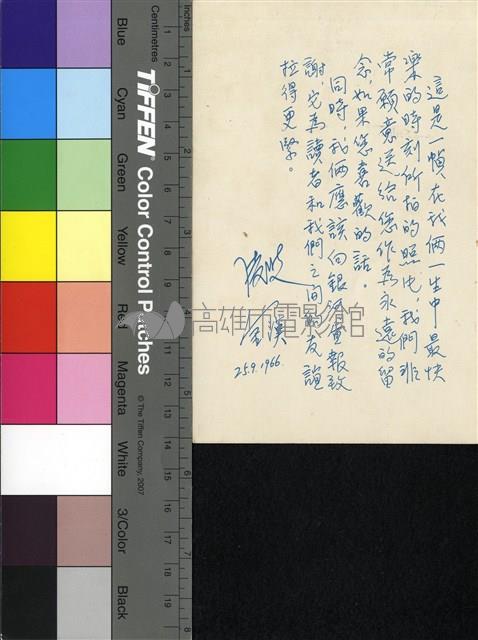 這是一幀在我倆一生中最快
樂的時刻所拍的照片,我們非
常願意送給您作為永遠的留
念,如果您喜歡的話。
同時,我倆應該向銀河畫報致
謝,它為讀者和我們之間的友誼
拉得更緊。
凌波
金漢
25.9.1966
高雄市電影館
Inches
1 2 3 4 5 6 7 8
Centimetres
1 2 3 4 5 6 7 8 9 10 11 12 13 14 15 16 17 18 19
TIFFEN® Color Control Patches
© The Tiffen Company, 2007
Blue
Cyan
Green
Yellow
Red
Magenta
White
3/Color
Black